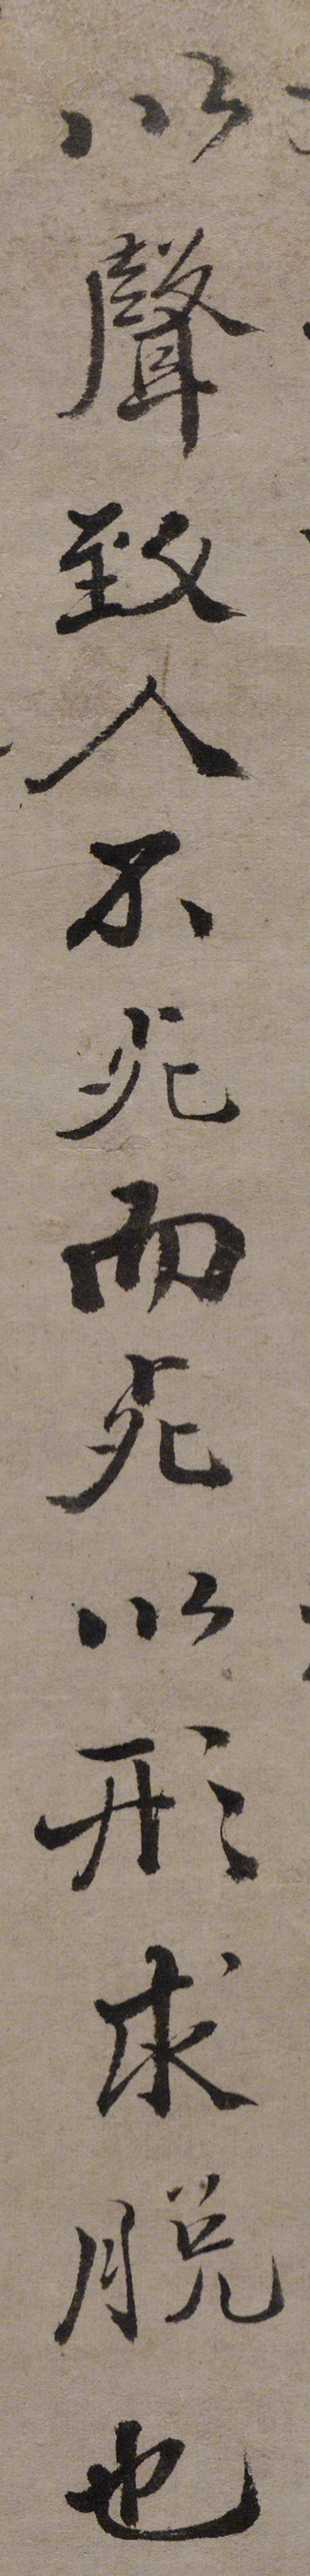 以聲致人不死而死以形求脫也